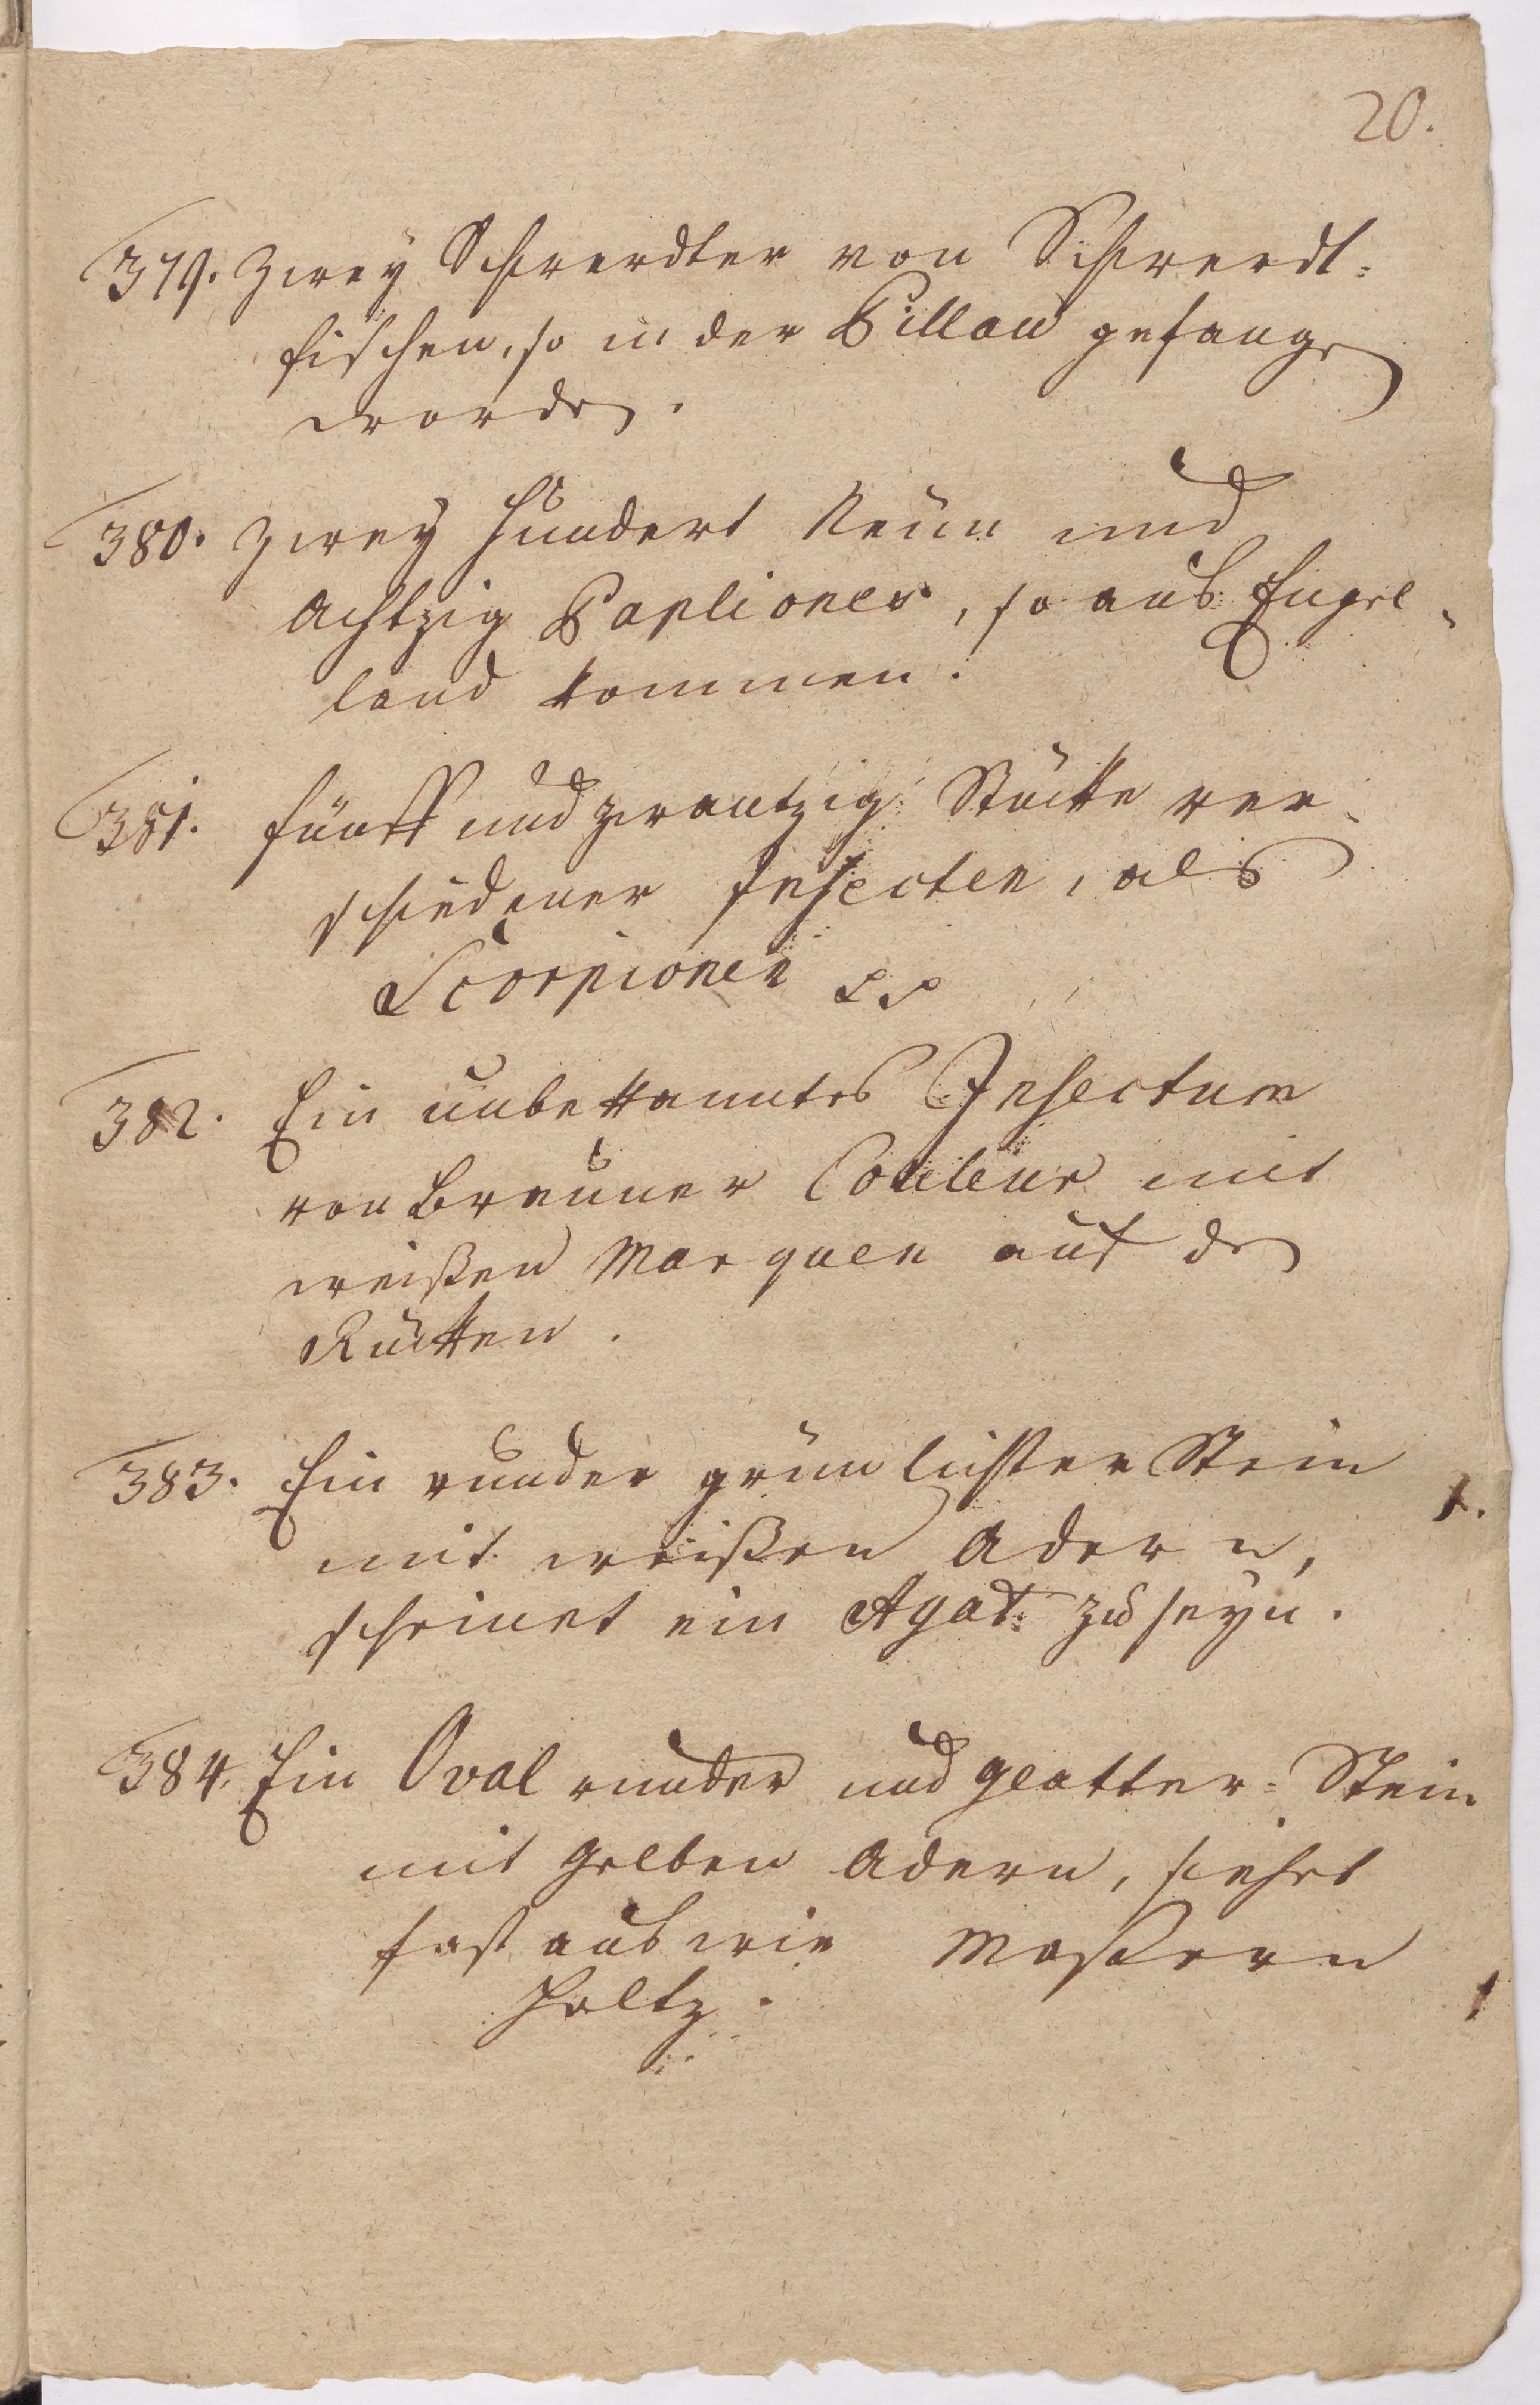 20.
379. Zwey Schwerdter von Schwerdt=
fischen, so in der Pillau gefangen
worden.
380. Zwey hundert Neün und
Achtzig Paplioner, so aus Engel-
land kommen.
381. fünff und zwantzig Stücke ver-
schiedener Insecten, als
Scorpionen
382. Ein unbekanntes Insectum
von Brauner Couleur mit
weißen Marquen auf den
Rücken.
383. Ein runder grünlichter Stein 1.
mit weißen Adern,
scheinet ein Agat zu seyn.
384. Ein Oval runder und glatter Stein
mit gelben Adern, siehet
fast aus wie Masern
Holtz. 1